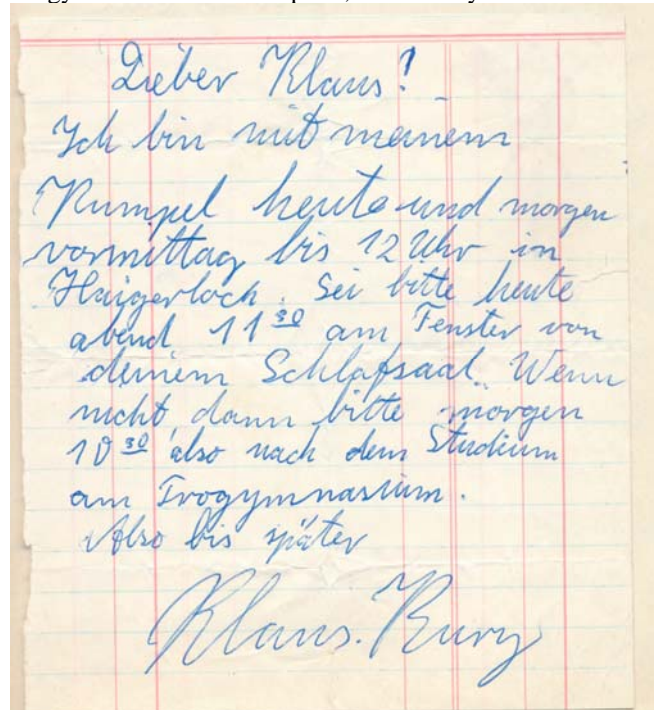 Lieber Klaus!
Ich bin mit meinem
Kumpel heute und morgen
vormittag bis 12 Uhr in
Haigerloch. Sei bitte heute
abend 11 30 am Fenster von
deinem Schlafsaal. Wenn
nicht, dann bitte morgen
10 30 also nach dem Studium
am Progymnasium.
Also bis später
Klaus.